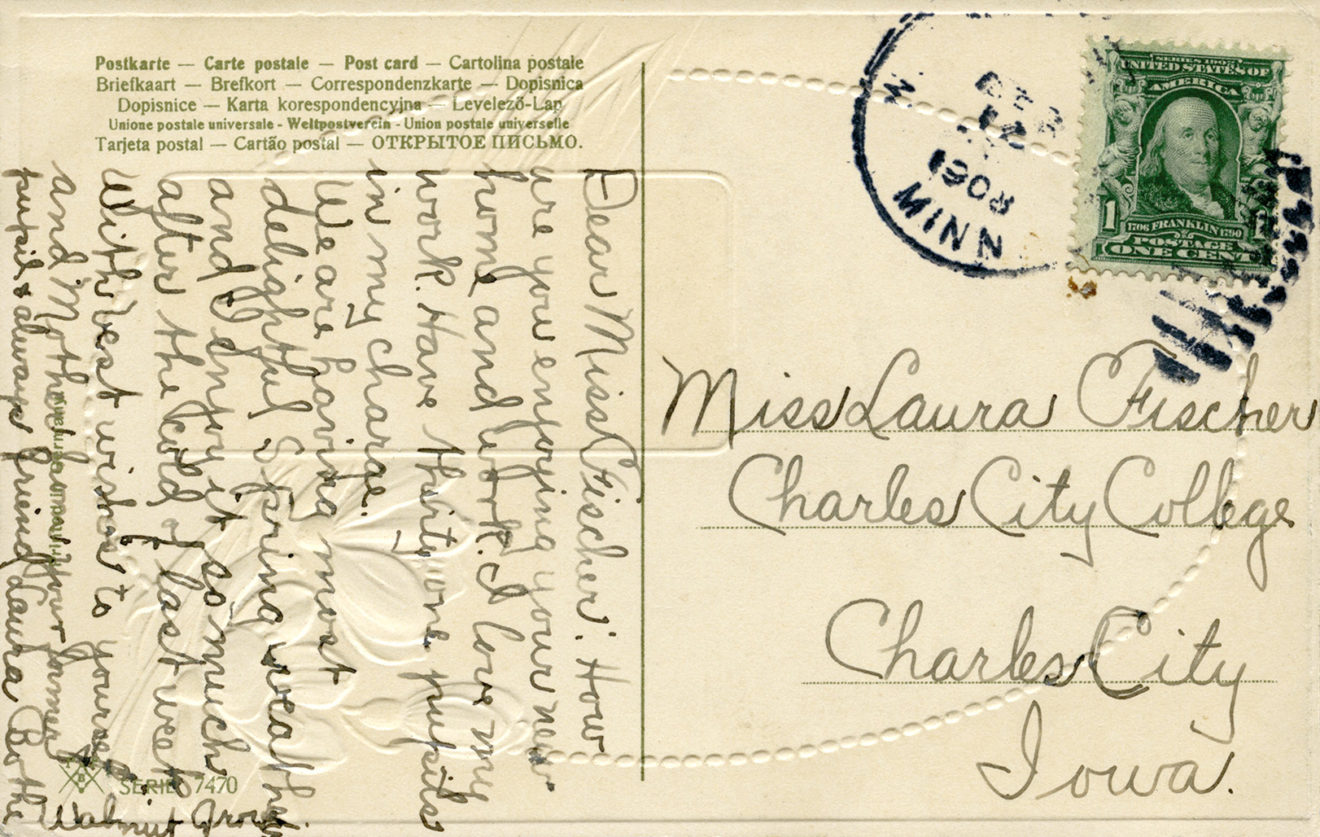 Postkarte — Carte postale — Post card — Cartolina postale
Briefkaart — Brefkort — Correspondenzkarte — Dopisnica
Dopisnice — Karta korespondencyjna — Levelező-Lap
Unione postale universale - Weltpostverein - Union postale universelle
Tarjeta postal — Cartão postal — ОТКРЫТОЕ ПИСЬМО.
Dear Miss Fischer: How
are you enjoying your new
home and work. I love my
work. Have thirty one pupils
in my charge.
We are having most
delightful Spring weather
and I enjoy it so much
after the cold of last week
With best wishes to yourself
and Mother your former
pupil & always friend Laura Bothe
Walnut Grove
SERIE 7470
MINN
1908
SERIES 1902
UNITED STATES OF
AMERICA
1706 FRANKLIN 1790
1 1
POSTAGE
ONE CENT
Miss Laura Fischer
Charles City College
Charles City
Iowa.